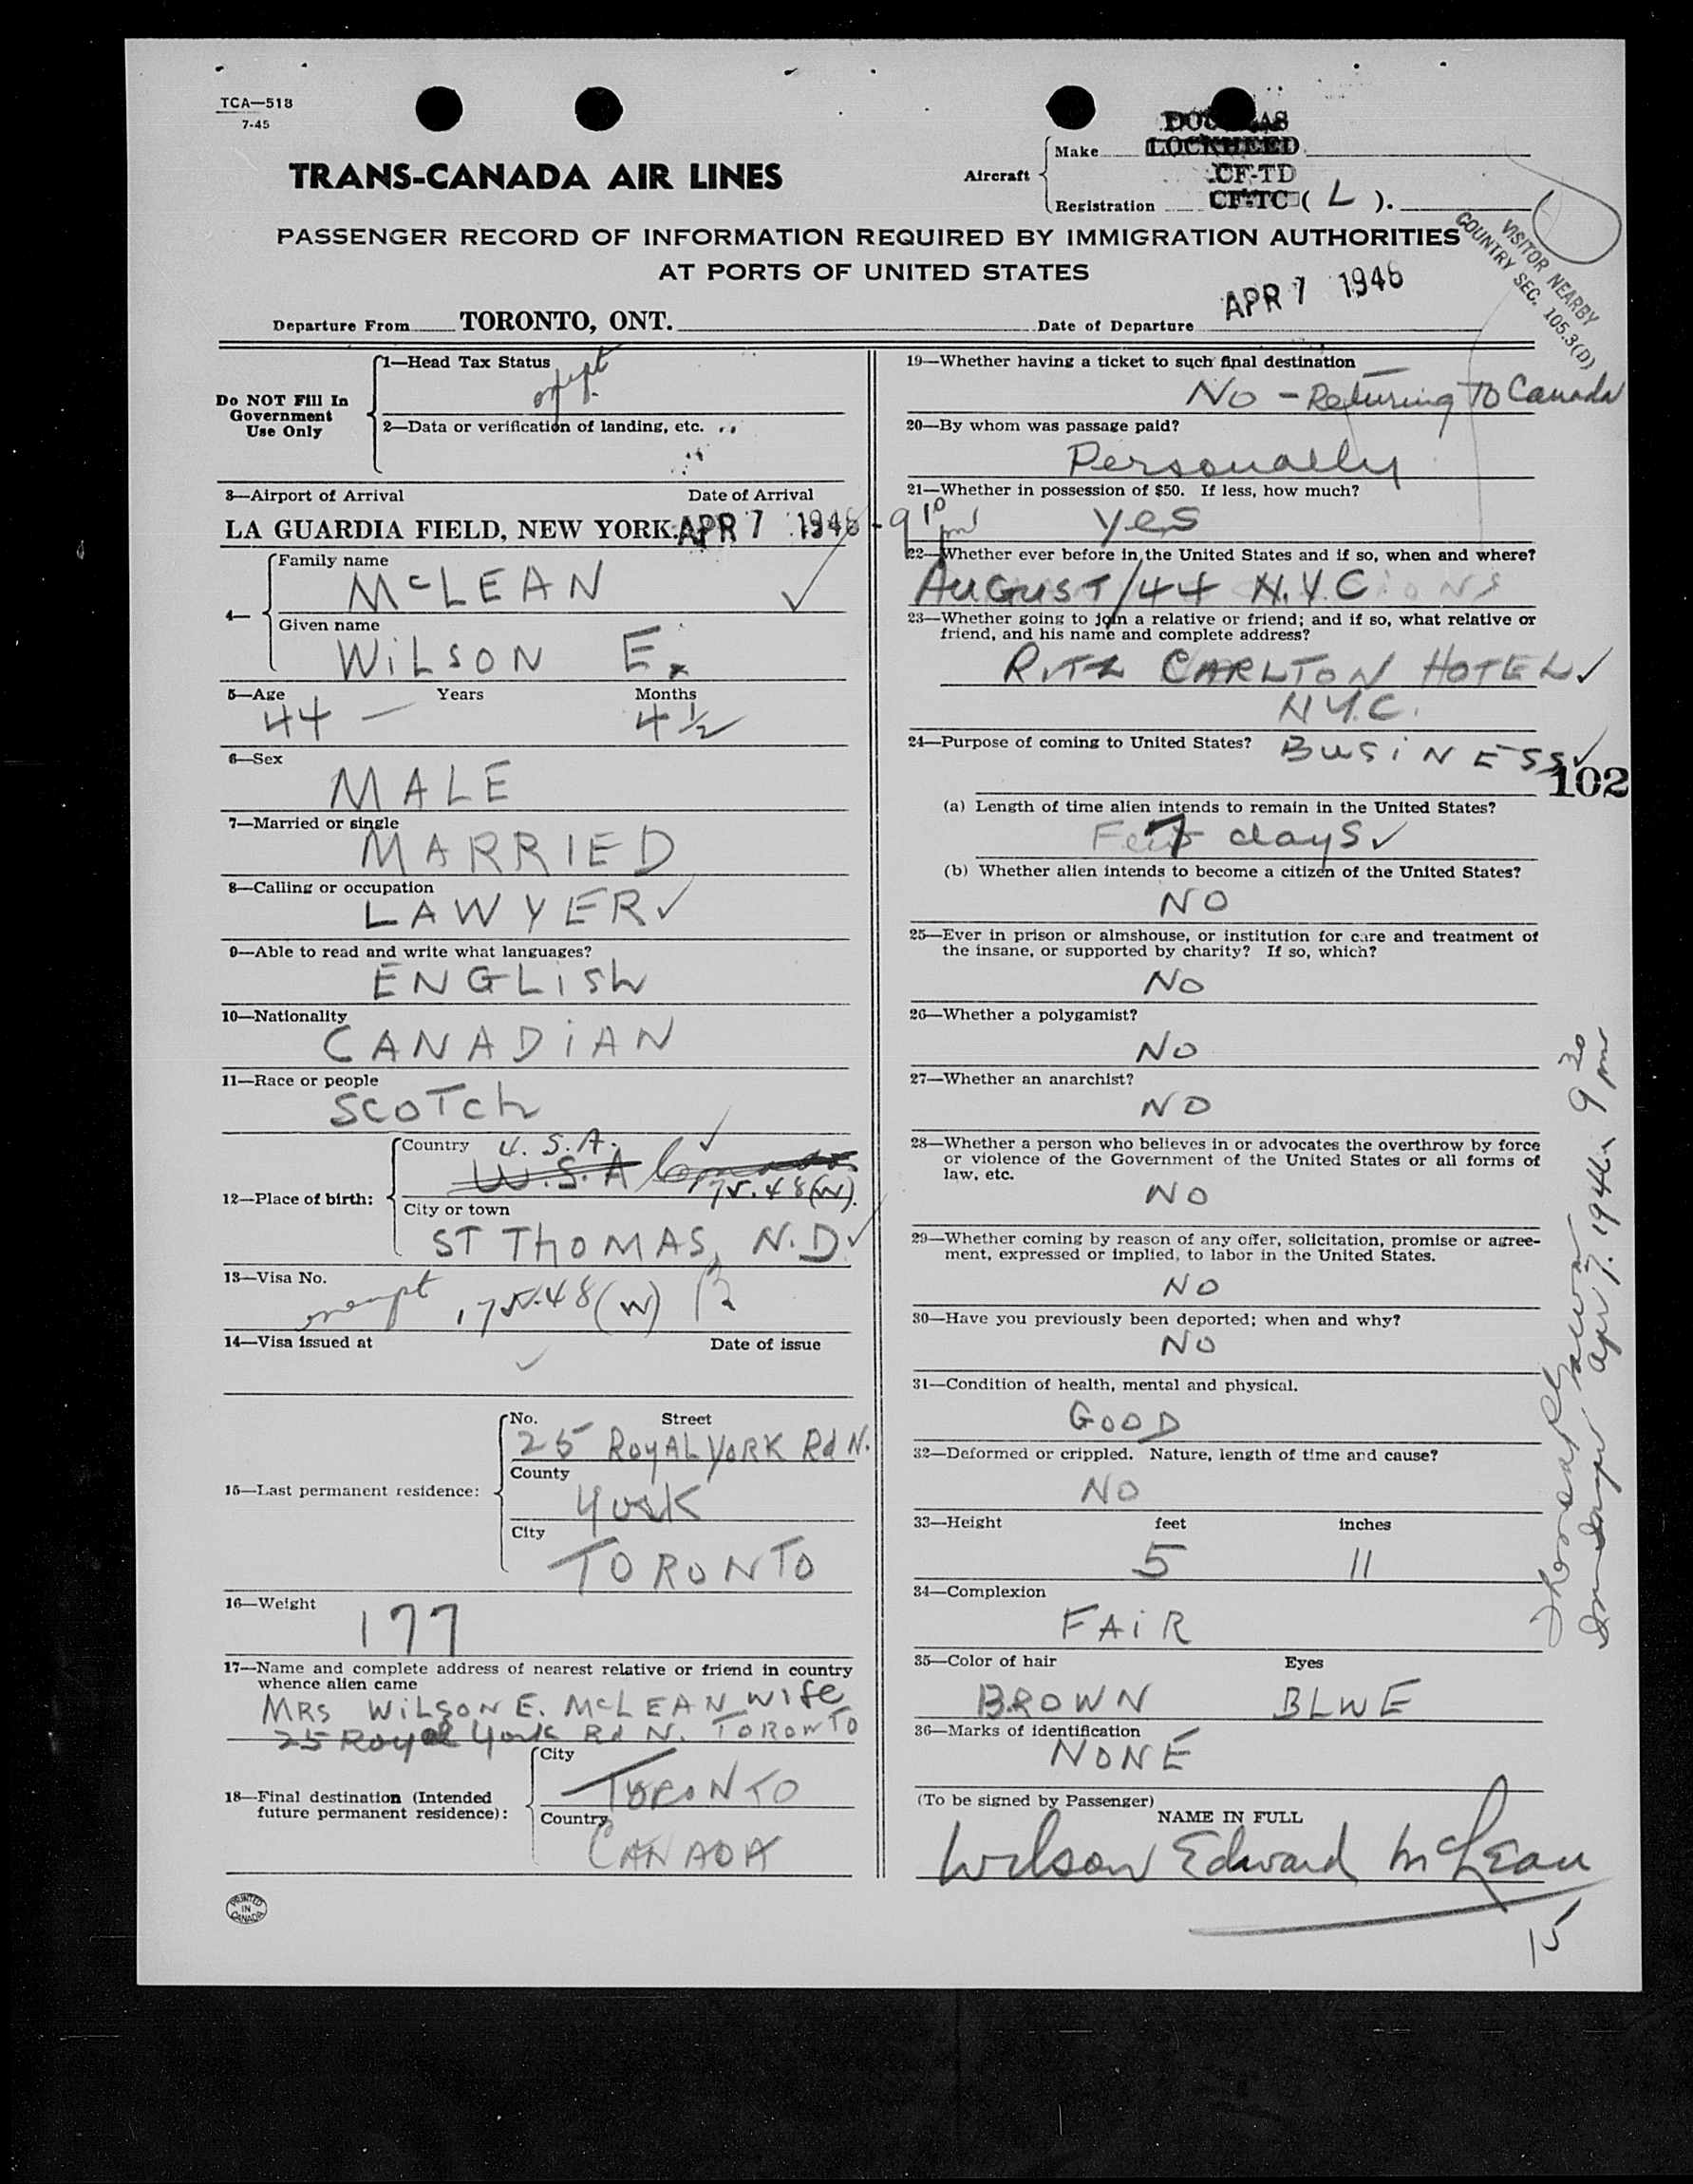 TCA—518
7-45
TRANS-CANADA AIR LINES
Aircraft
Make DOUGLAS
LOCKHEED
CF-TD
Registration CF-TC ( L ).
PASSENGER RECORD OF INFORMATION REQUIRED BY IMMIGRATION AUTHORITIES
AT PORTS OF UNITED STATES
VISITOR NEARBY
COUNTRY SEC. 105.3(D)
Departure From TORONTO, ONT. Date of Departure APR 7 1946
Do NOT Fill In
Government
Use Only
1—Head Tax Status
2—Data or verification of landing, etc.
3—Airport of Arrival Date of Arrival
LA GUARDIA FIELD, NEW YORK. APR 7 1946 - 9 10 pm
4—
Family name
McLEAN
Given name
WILSON E.
5—Age Years Months
44 — 4 1/2
6—Sex
MALE
7—Married or single
MARRIED
8—Calling or occupation
LAWYER
9—Able to read and write what languages?
ENGLISh
10—Nationality
CANADIAN
11—Race or people
SCOTCh
12—Place of birth:
Country U.S.A.
U.S.A
175.48(W).
City or town
ST ThOMAS, N.D.
13—Visa No.
exempt 175.48(W)
14—Visa issued at Date of issue
15—Last permanent residence:
No. Street
25 ROYAL YORK Rd N.
County
York
City
TORONTO
16—Weight
177
17—Name and complete address of nearest relative or friend in country
whence alien came
MRS WILSON E. McLEAN wife
25 Royal York Rd N. TORONTO
18—Final destination (Intended
future permanent residence):
City
TORONTO
Country
CANADA
PRINTED
IN
CANADA
19—Whether having a ticket to such final destination
No - Returning To Canada
20—By whom was passage paid?
Personally
21—Whether in possession of $50. If less, how much?
yes
22—Whether ever before in the United States and if so, when and where?
AUGUST/44 N.Y.C
23—Whether going to join a relative or friend; and if so, what relative or
friend, and his name and complete address?
RITZ CARLTON HOTEL
N.Y.C.
24—Purpose of coming to United States? BUSINESS
102
(a) Length of time alien intends to remain in the United States?
7 days
(b) Whether alien intends to become a citizen of the United States?
NO
25—Ever in prison or almshouse, or institution for care and treatment of
the insane, or supported by charity? If so, which?
No
26—Whether a polygamist?
No
27—Whether an anarchist?
NO
28—Whether a person who believes in or advocates the overthrow by force
or violence of the Government of the United States or all forms of
law, etc.
NO
29—Whether coming by reason of any offer, solicitation, promise or agree-
ment, expressed or implied, to labor in the United States.
NO
30—Have you previously been deported; when and why?
NO
31—Condition of health, mental and physical.
GOOD
32—Deformed or crippled. Nature, length of time and cause?
NO
33—Height feet inches
5 11
34—Complexion
FAIR
35—Color of hair Eyes
BROWN BLUE
36—Marks of identification
NONE
(To be signed by Passenger)
NAME IN FULL
Wilson Edward McLean
15
Apr 7. 1946 9 30 pm